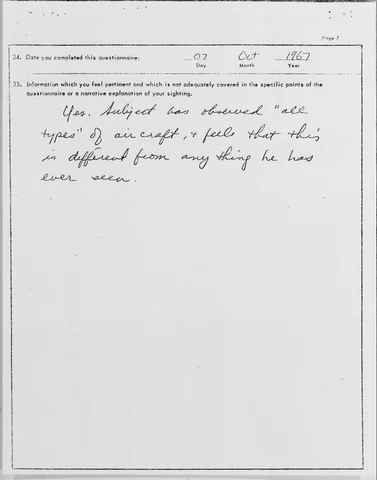 Page 7
34. Date you completed this questionnaire: 07 Oct 1967
Day Month Year
35. Information which you feel pertinent and which is not adequately covered in the specific points of the
questionnaire or a narrative explanation of your sighting.
Yes. Subject has observed "all
types" of aircraft, & feels that this
is different from any thing he has
ever seen.